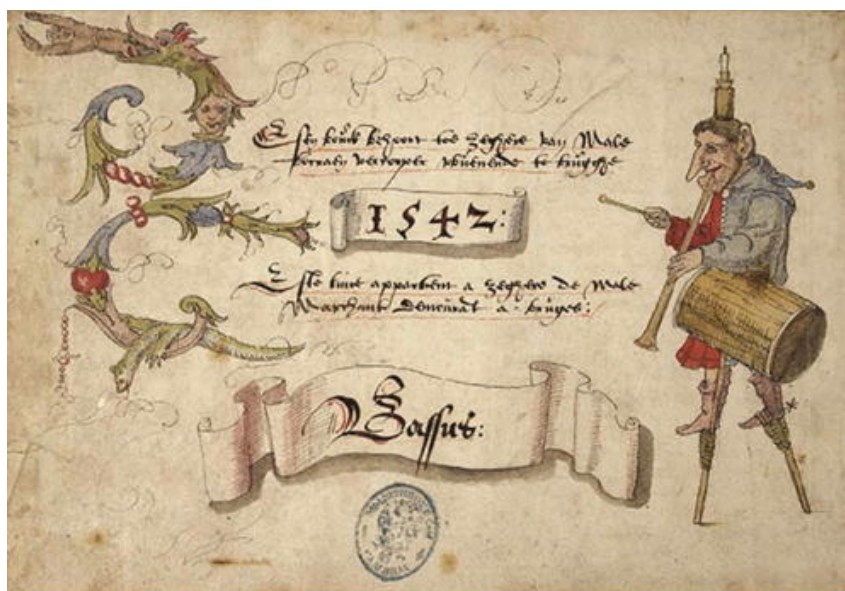 Esen bouck behoort toe zeghere van Male
wonende te brugghe
1542:
appartient a zeghere de Male
Marchant Demeurāt a bruges:
Bassus: